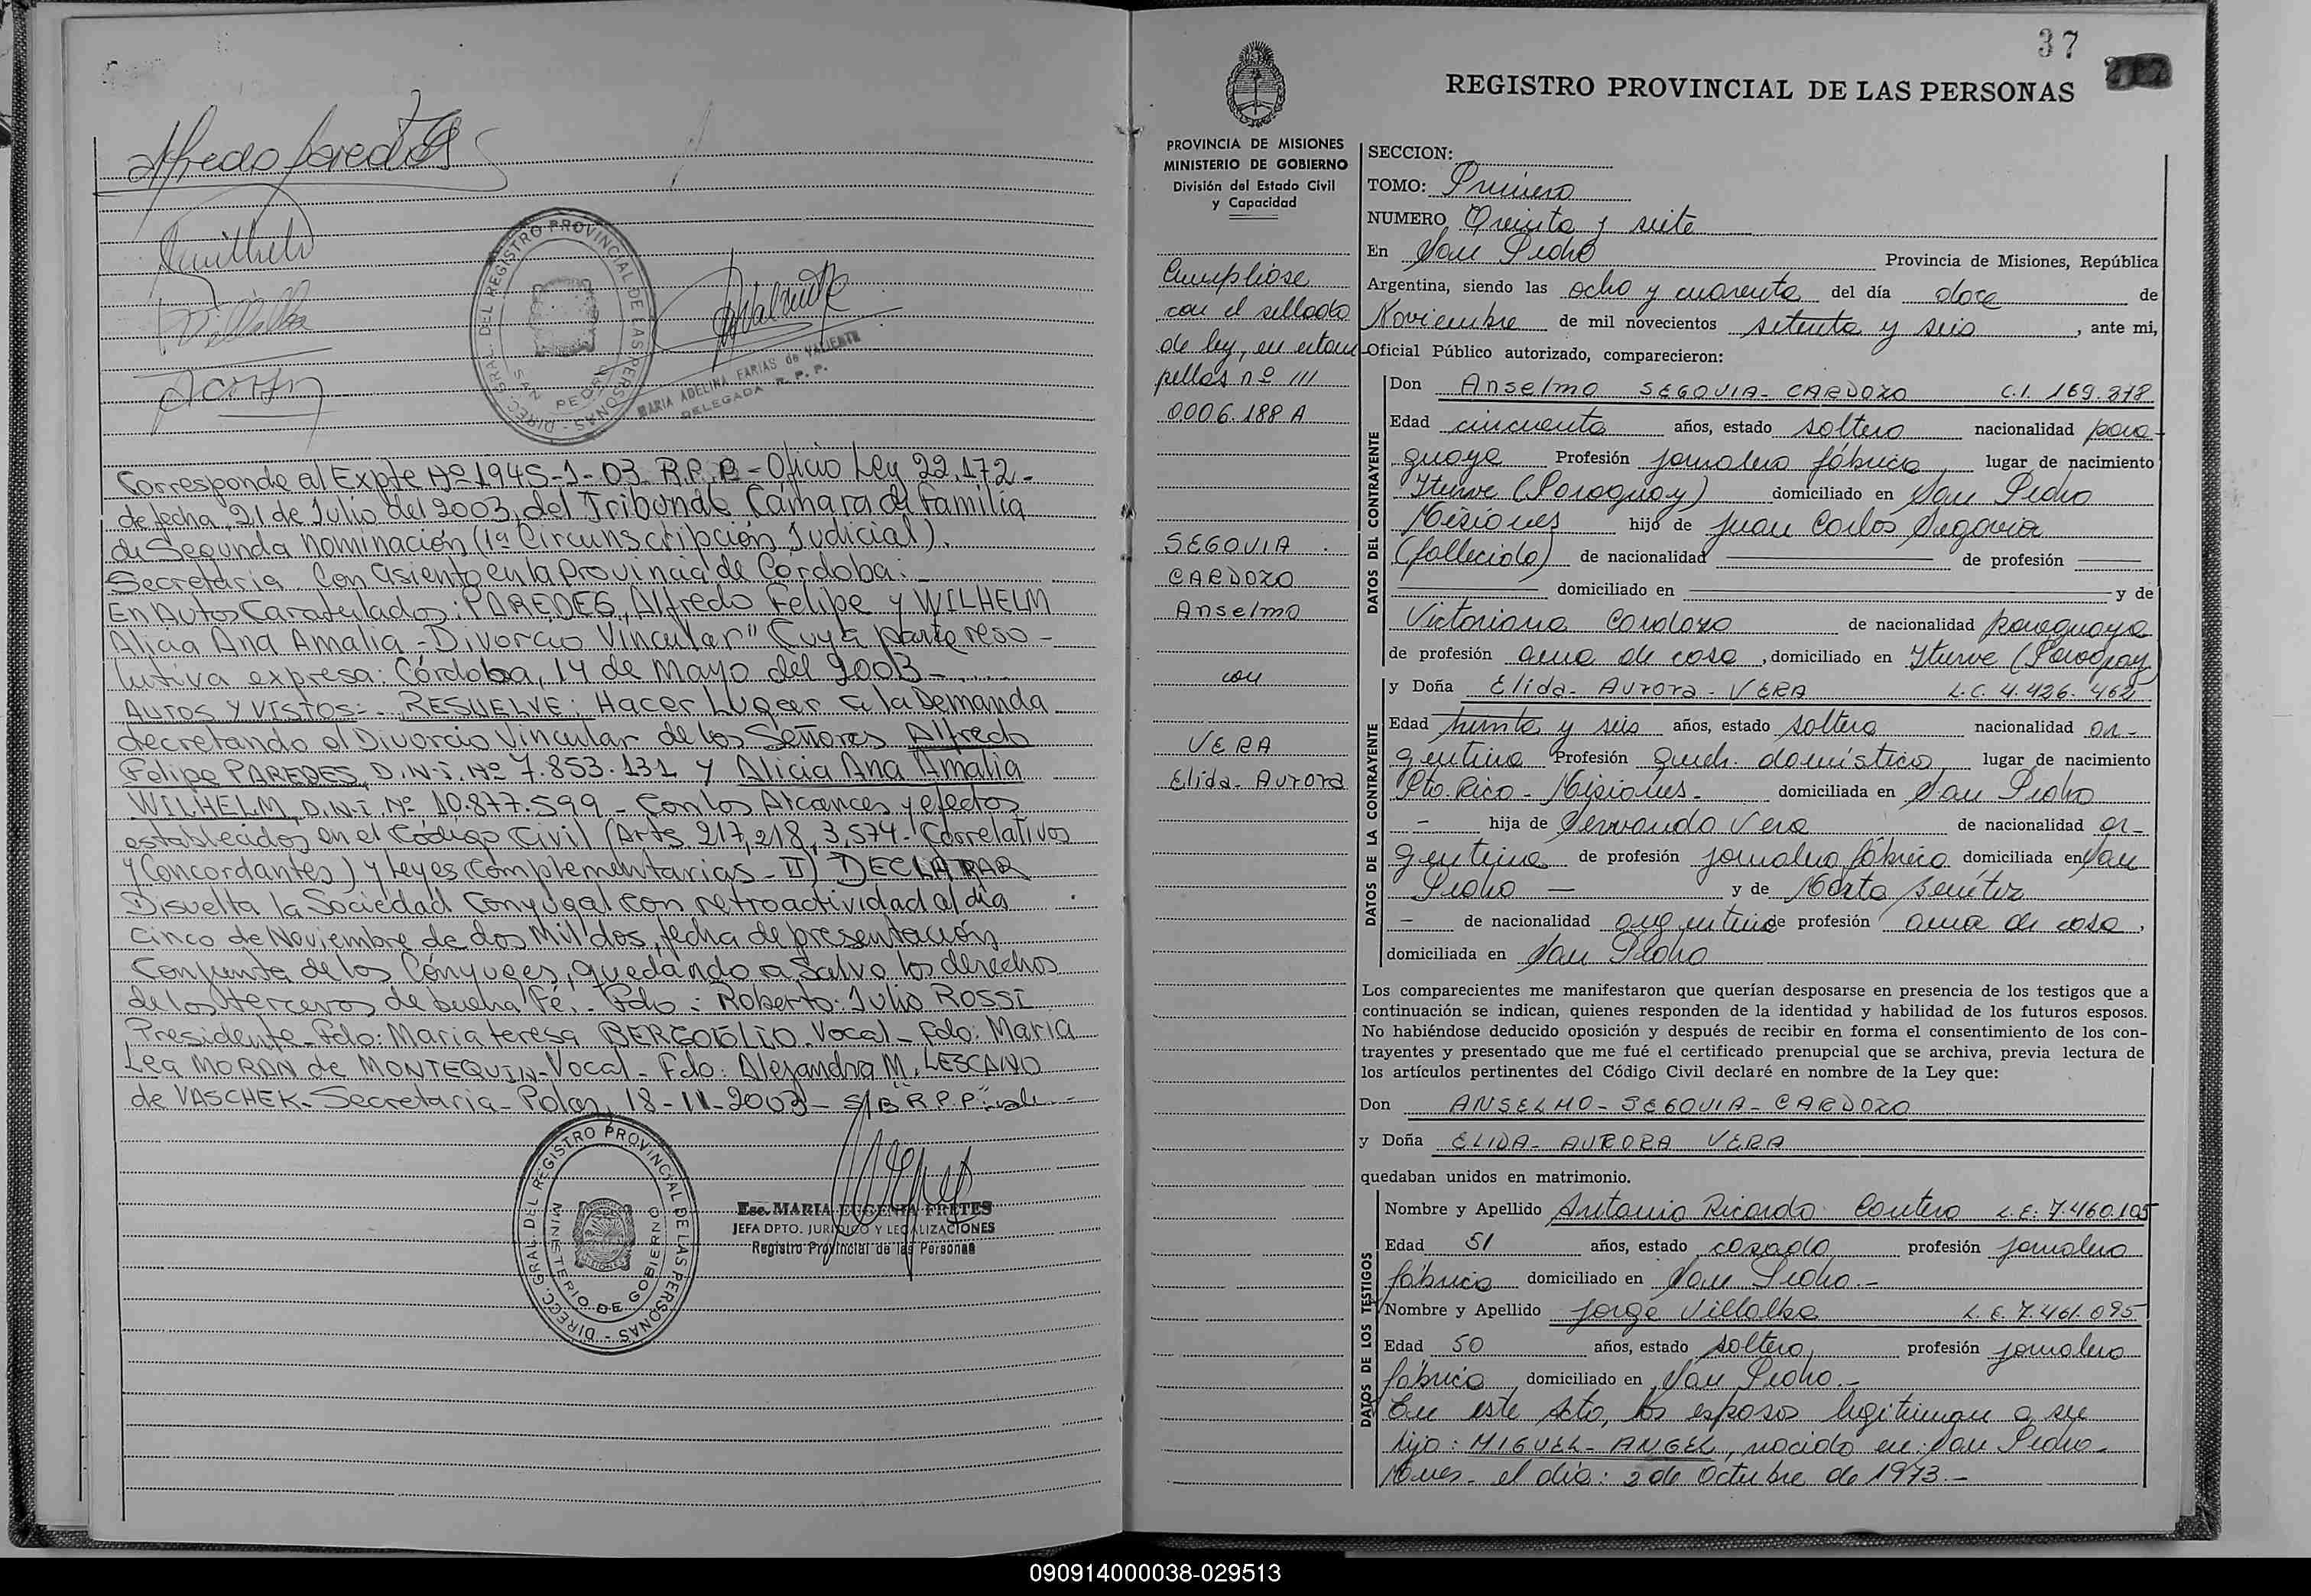 Alfredo Paredes
DIREC. GRAL. DEL REGISTRO PROVINCIAL DE LAS PERSONAS
SAN PEDRO
MARIA ADELINA FARIAS de VALIENTE
DELEGADA R. P. P.
Corresponde al Expte Nº 1945-1-03 R.P.P - Oficio Ley 22.172-
de fecha, 21 de Julio del 2003, del Tribunal Cámara de Familia
de Segunda Nominación (1ª Circunscripción Judicial).
Secretaria Con asiento en la Provincia de Córdoba:-
En Autos Caratulados: PAREDES, Alfredo Felipe y WILHELM
Alicia Ana Amalia - Divorcio Vincular" Cuya parte reso-
lutiva expresa: Córdoba, 14 de Mayo del 2003-
AUTOS Y VISTOS:- RESUELVE: Hacer Lugar a la Demanda
decretando el Divorcio Vincular de los Señores Alfredo
Felipe PAREDES, D.N.I. Nº 7.853.131 y Alicia Ana Amalia
WILHELM, D.N.I. Nº 10.877.599 - Con los Alcances y efectos
establecidos en el Código Civil (Arts 217, 218, 3.574- Correlativos
y Concordantes) y Leyes Complementarias - II) DECLARAR
Disuelta la Sociedad Conyugal con retroactividad al día
cinco de Noviembre de dos mil dos, fecha de presentación
Conjunta de los Cónyuges, quedando a Salvo los derechos
de los terceros de buena Fé.- Fdo: Roberto Julio ROSSI
Presidente - Fdo: Maria teresa BERGOGLIO. Vocal - Fdo: Maria
Lea MORAN de MONTEQUIN - Vocal - Fdo: Alejandra M. LESCANO
de VASCHEK - Secretaria - Pdas, 18-11-2003-
DIREC. GRAL. DEL REGISTRO PROVINCIAL DE LAS PERSONAS
MINISTERIO DE GOBIERNO
MISIONES
Esc. MARIA EUGENIA FRETES
JEFA DPTO. JURIDICO Y LEGALIZACIONES
Registro Provincial de las Personas
37
REGISTRO PROVINCIAL DE LAS PERSONAS
PROVINCIA DE MISIONES
MINISTERIO DE GOBIERNO
División del Estado Civil
y Capacidad
Cumplióse
con el sellado
de ley, en estam
pillas nº III
0006.188 A
SEGOVIA
CARDOZO
Anselmo
con
VERA
Elida- Aurora
SECCION:
TOMO: Primero
NUMERO Treinta y siete
En San Pedro Provincia de Misiones, República
Argentina, siendo las ocho y cuarenta del día doce de
Noviembre de mil novecientos setenta y seis, ante mi,
Oficial Público autorizado, comparecieron:
DATOS DEL CONTRAYENTE
Don Anselmo SEGOVIA- CARDOZO C.I. 169.878
Edad cincuenta años, estado soltero nacionalidad para-
guaya Profesión jornalero fábrica, lugar de nacimiento
Iturve (Paraguay) domiciliado en San Pedro
Misiones hijo de Juan Carlos Segovia
(fallecido) de nacionalidad de profesión
domiciliado en y de
Victoriana Cardozo de nacionalidad paraguaya
de profesión ama de casa, domiciliado en Iturve (Paraguay)
DATOS DE LA CONTRAYENTE
y Doña Elida- Aurora- VERA L.C. 4.426.462
Edad treinta y seis años, estado soltera nacionalidad ar-
gentina Profesión queh. domésticos, lugar de nacimiento
Pto. Rico- Misiones- domiciliada en San Pedro
- hija de Servando Vera de nacionalidad ar-
gentina de profesión jornalero fábrica domiciliada en San
Pedro — y de Marta Benítez
- de nacionalidad argentina de profesión ama de casa,
domiciliada en San Pedro
Los comparecientes me manifestaron que querían desposarse en presencia de los testigos que a
continuación se indican, quienes responden de la identidad y habilidad de los futuros esposos.
No habiéndose deducido oposición y después de recibir en forma el consentimiento de los con-
trayentes y presentado que me fué el certificado prenupcial que se archiva, previa lectura de
los artículos pertinentes del Código Civil declaré en nombre de la Ley que:
Don ANSELMO- SEGOVIA- CARDOZO
y Doña ELIDA- AURORA VERA
quedaban unidos en matrimonio.
DATOS DE LOS TESTIGOS
Nombre y Apellido Antonio Ricardo Contero L.E: 7.460.105
Edad 51 años, estado casado, profesión jornalero
fábrica domiciliado en San Pedro.-
Nombre y Apellido Jorge Villalba L.E. 7.461.095
Edad 50 años, estado soltero, profesión jornalero
fábrica domiciliado en San Pedro.-
En este acto, los esposos legitiman a su
hijo: MIGUEL- ANGEL, nacido en: San Pedro-
Mnes- el día: 2 de Octubre de 1973.-
090914000038-029513